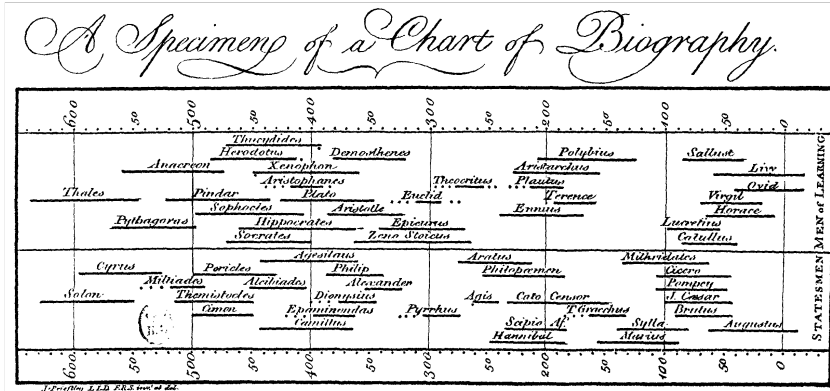 A Specimen of a Chart of Biography.
600 50 500 50 400 50 300 50 200 50 100 50 0
Thucydides
Herodotus Demosthenes Polybius Sallust
Anacreon Xenophon Aristarchus Livy
Aristophanes Theocritus Plautus
Thales Pindar Plato Euclid Terence Virgil Ovid
Sophocles Aristotle Ennius Horace
Pythagoras Hippocrates Epicurus Lucretius
Socrates Zeno Stoicus Catullus
MEN of LEARNING
Agesilaus Aratus Mithridates
Cyrus Pericles Philip Philopœmen Cicero
Miltiades Alcibiades Alexander Pompey
Solon Themistocles Dionysius Agis Cato Censor J. Cæsar
Cimon Epaminondas Pyrrhus T. Gracchus Brutus
Camillus Scipio Af. Sylla Augustus
Hannibal Marius
STATESMEN
600 50 500 50 400 50 300 50 200 50 100 50 0
J. Priestley L.L.D. F.R.S. inv.t et del.